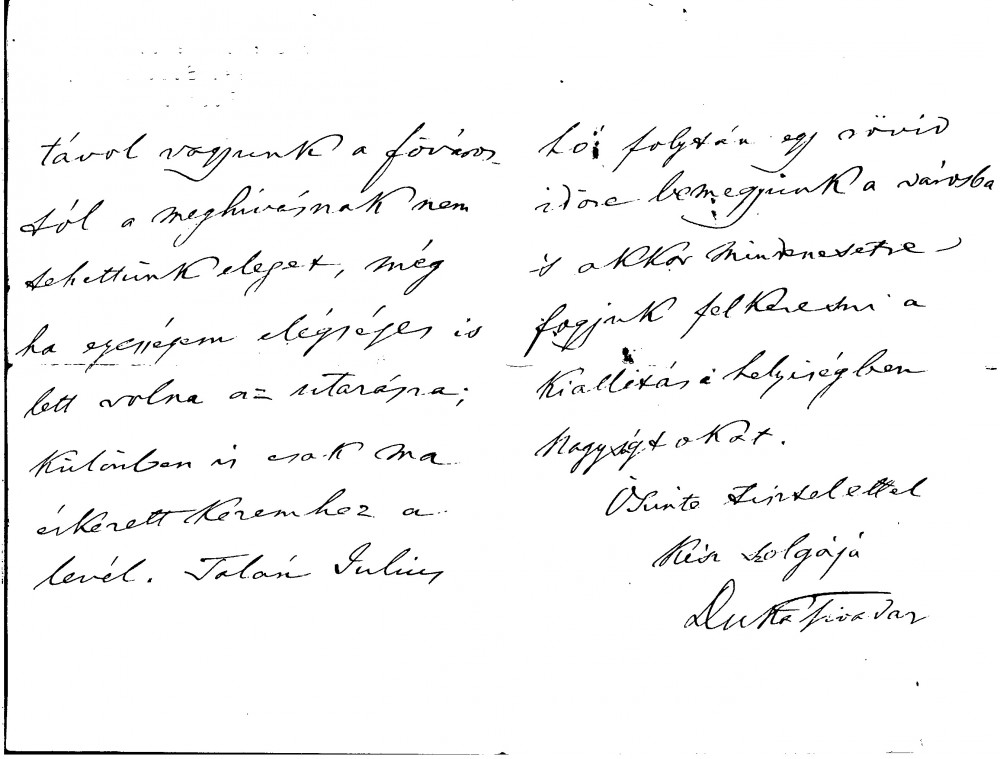 távol vagyunk a főváros-
tól a meghívásnak nem
tehettünk eleget, még
ha egésségem elégséges is
lett volna az utazásra;
különben is csak ma
érkezett kezemhez a
levél. Talán Julius
hó folytán egy rövid
időre bemegyünk a városba
is akkor mindenesetre
fogjuk felkeresni a
kiállítási helyiségben
Nagyságtokat.
Őszinte tisztelettel
kész szolgája
Duka Tivadar